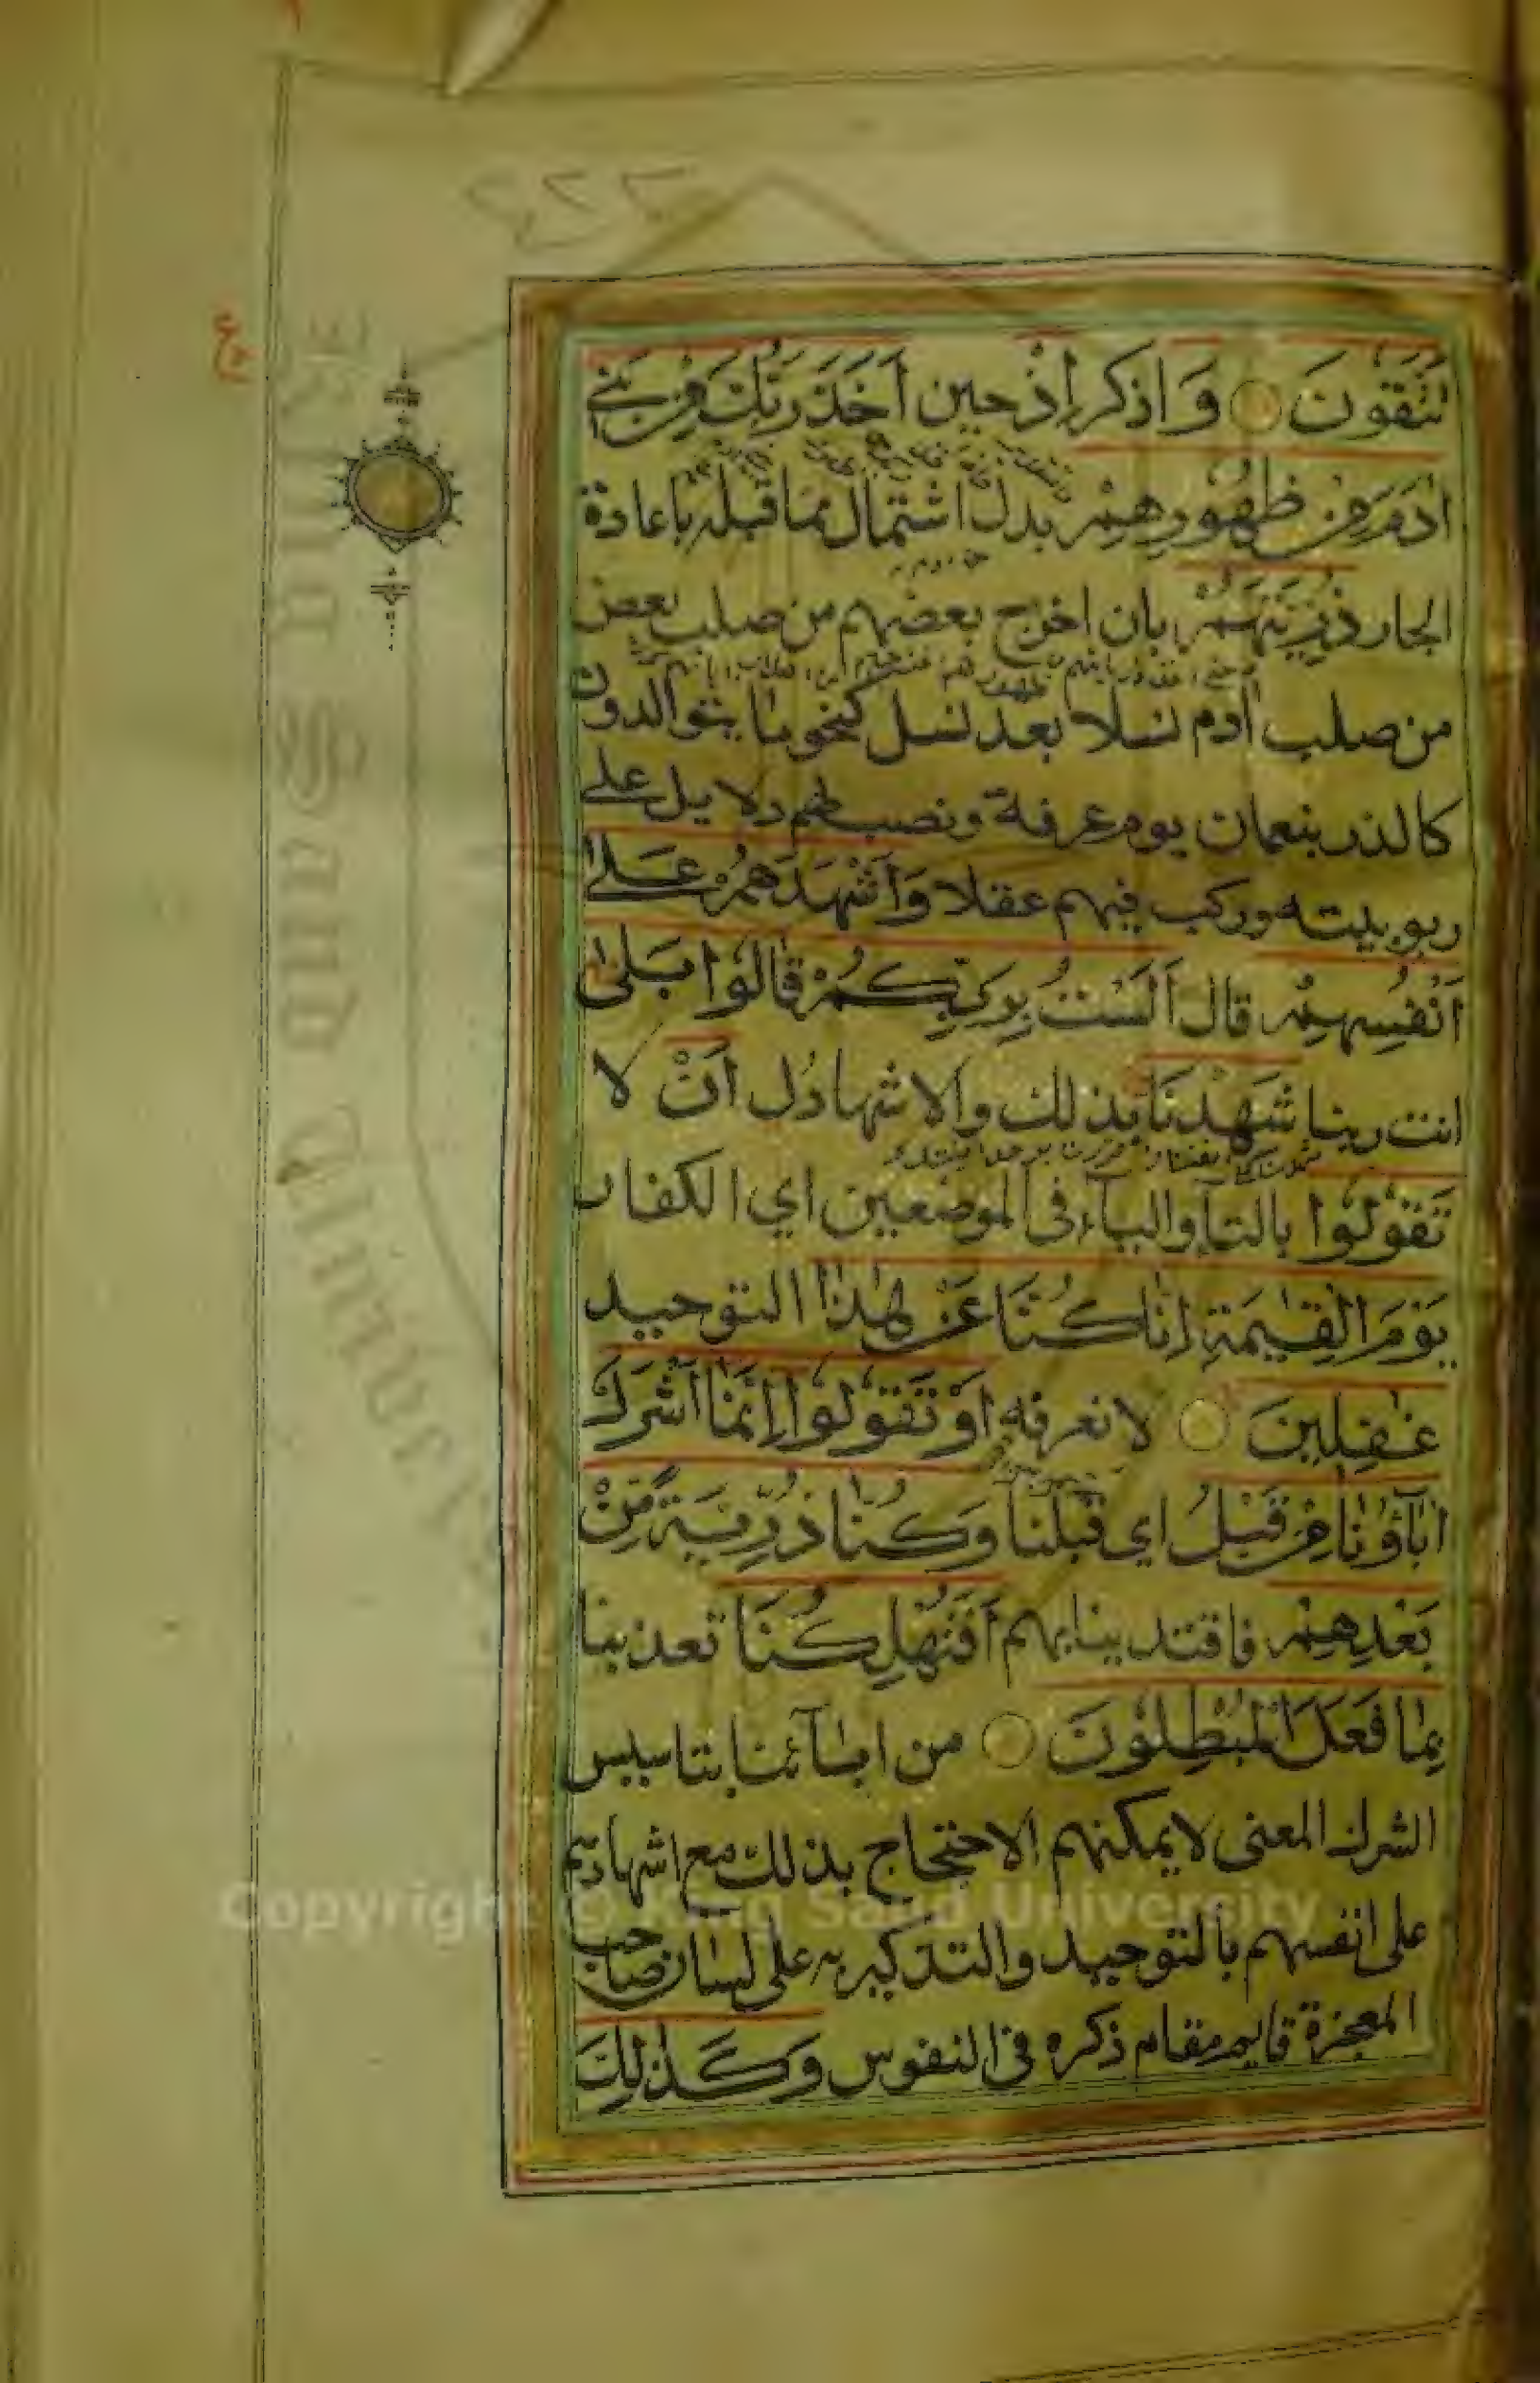 تَتَّقُونَ وَ اذكر اِذْ حين اَخَذَ رَبُّكَ مِنْ بَنِي
اٰدَمَ مِنْ ظُهُورِهِمْ بدل اشتمال مما قبله باعادة
الجار ذُرِّيَّتَهُمْ بان اخرج بعضهم من صلب بعض
من صلب آدم نسلا بعد نسل كنحو ما يتوالدون
كالذر بنعمان يوم عرفة ونصب لهم دلايل على
ربوبيته وركب فيهم عقلا وَاَشْهَدَهُمْ عَلٰى
اَنْفُسِهِمْ قال اَلَسْتُ بِرَبِّكُمْ قَالُوْا بَلٰى
انت ربنا شَهِدْنَا بذلك والاشهاد ل اَنْ لا
تَقُوْلُوْا بالتاء والياء في الموضعين اي الكفار
يَوْمَ الْقِيٰمَةِ اِنَّا كُنَّا عَنْ هٰذَا التوحيد
غٰفِلِيْنَ لا نعرفه اَوْ تَقُوْلُوْا اِنَّمَا اَشْرَكَ
اٰبَاؤُنَا مِنْ قَبْلُ اي قبلنا وَكُنَّا ذُرِّيَّةً مِّنْ
بَعْدِهِمْ فاقتدينا بهم اَفَتُهْلِكُنَا تعذبنا
بِمَا فَعَلَ الْمُبْطِلُوْنَ من ابآئنا بتاسيس
الشرك المعنى لا يمكنهم الاحتجاج بذلك مع اشهادهم
على انفسهم بالتوحيد والتذكير به على لسان صاحب
المعجزة قايم مقام ذكره في النفوس وَكَذٰلِكَ
Copyright © King Saud University